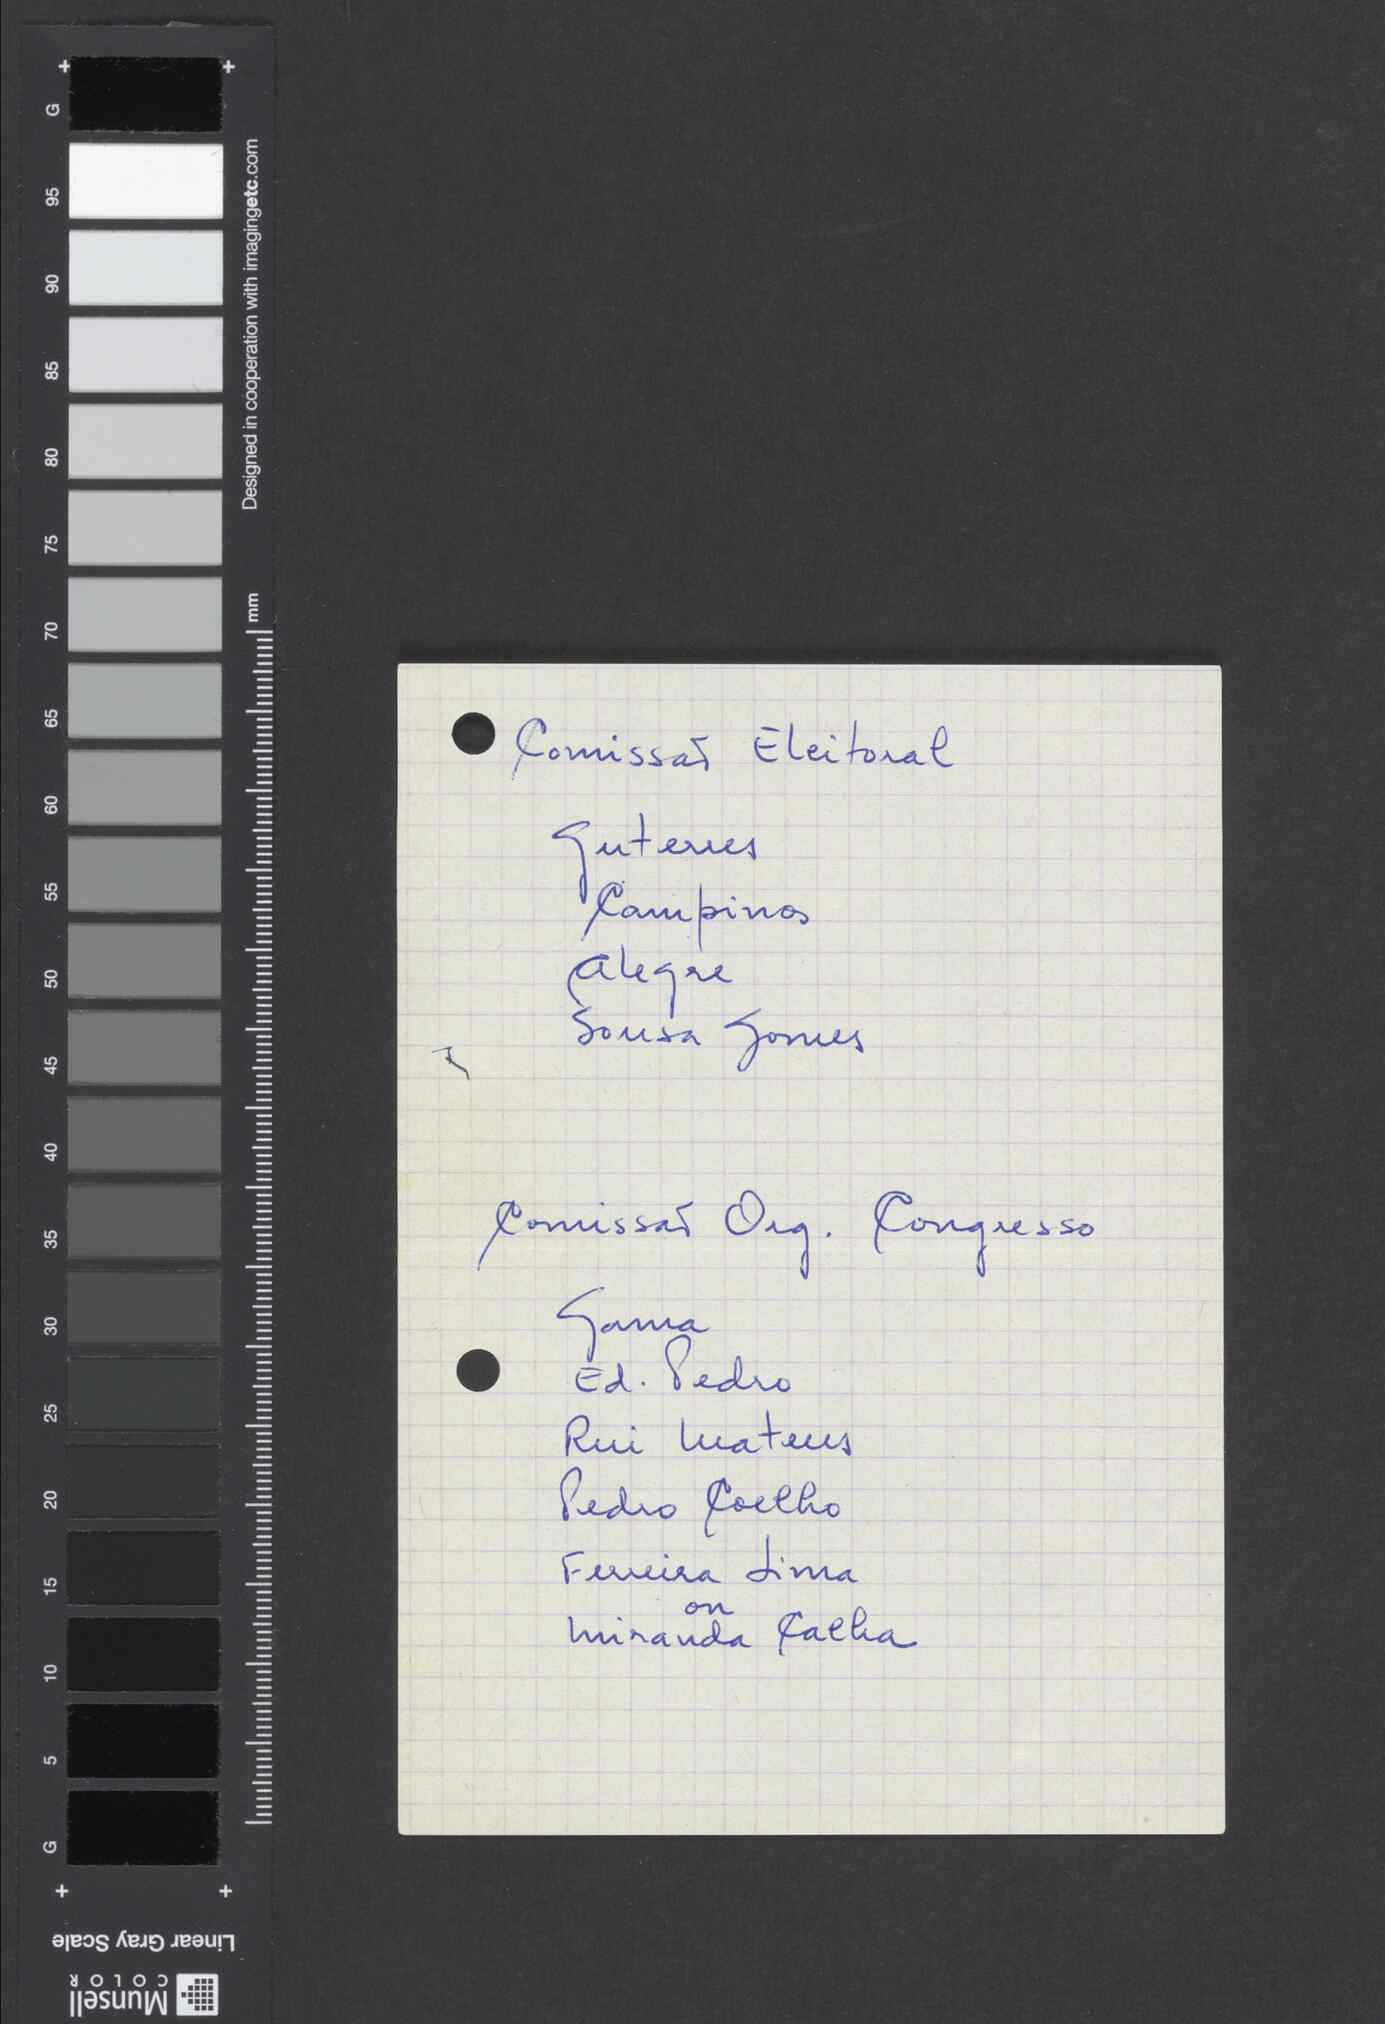 Comissão Eleitoral
Guterres
Campinos
Alegre
Sousa Gomes
Comissão Org. Congresso
Gama
Ed. Pedro
Rui Mateus
Pedro Coelho
Ferreira Lima
ou
Miranda Calha
G
95
90
85
80
75
70
65
60
55
50
45
40
35
30
25
20
15
10
5
G
Designed in cooperation with imagingetc.com
mm
Linear Gray Scale
Munsell
COLOR